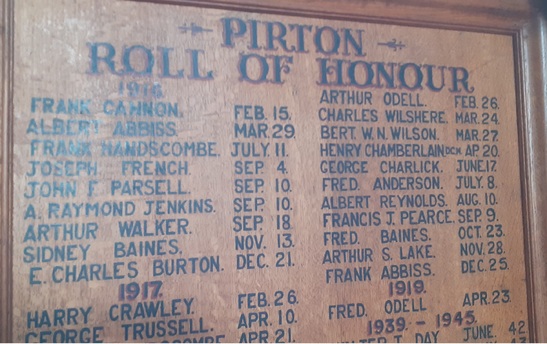 PIRTON
ROLL OF HONOUR
1916.
FRANK CANNON. FEB. 15.
ALBERT ABBISS. MAR. 29.
FRANK HANDSCOMBE. JULY. 11.
JOSEPH FRENCH. SEP. 4.
JOHN F PARSELL. SEP. 10.
A. RAYMOND JENKINS. SEP. 10.
ARTHUR WALKER. SEP. 18
SIDNEY BAINES. NOV. 13.
E. CHARLES BURTON. DEC. 21.
1917.
HARRY CRAWLEY. FEB. 26.
GEORGE TRUSSELL. APR. 10.
APR. 21.
ARTHUR ODELL. FEB. 26.
CHARLES WILSHERE. MAR. 24.
BERT. W. N. WILSON. MAR. 27.
HENRY CHAMBERLAIN DCM. AP. 20.
GEORGE CHARLICK. JUNE. 17.
FRED. ANDERSON. JULY. 8.
ALBERT REYNOLDS. AUG. 10.
FRANCIS J. PEARCE. SEP. 9.
FRED. BAINES. OCT. 23.
ARTHUR S. LAKE. NOV. 28.
FRANK ABBISS. DEC. 25.
1919.
FRED. ODELL APR. 23.
1939. - 1945.
WALTER T. DAY JUNE. 42